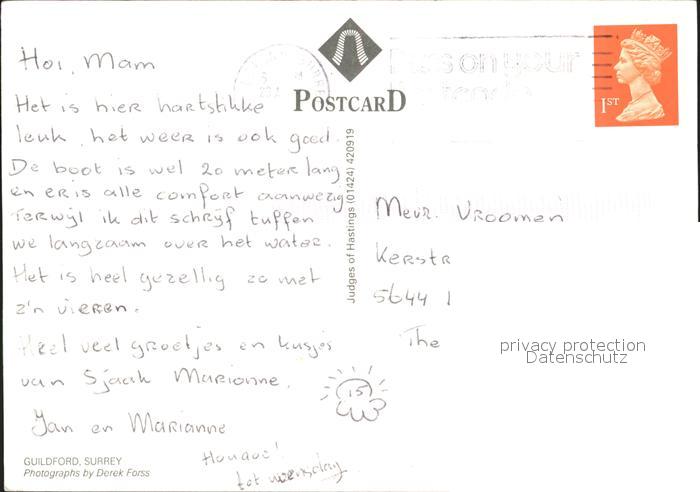 Hoi, Mam
Het is hier hartstikke
leuk, het weer is ook goed.
De boot is wel 20 meter lang
en er is alle comfort aanwezig
Terwijl ik dit schrijf tuffen
we langzaam over het water.
Het is heel gezellig zo met
z'n vieren.
Heel veel groetjes en kusjes
van Sjaak Marionne.
Jan en Marianne
Houdoe!
tot woensdag
15
GUILDFORD, SURREY
Photographs by Derek Forss
POSTCARD
Judges of Hastings (01424) 420919
SURREY
on your
1ST
Mevr. Vroomen
Kerstr
5644 1
The
privacy protection
Datenschutz